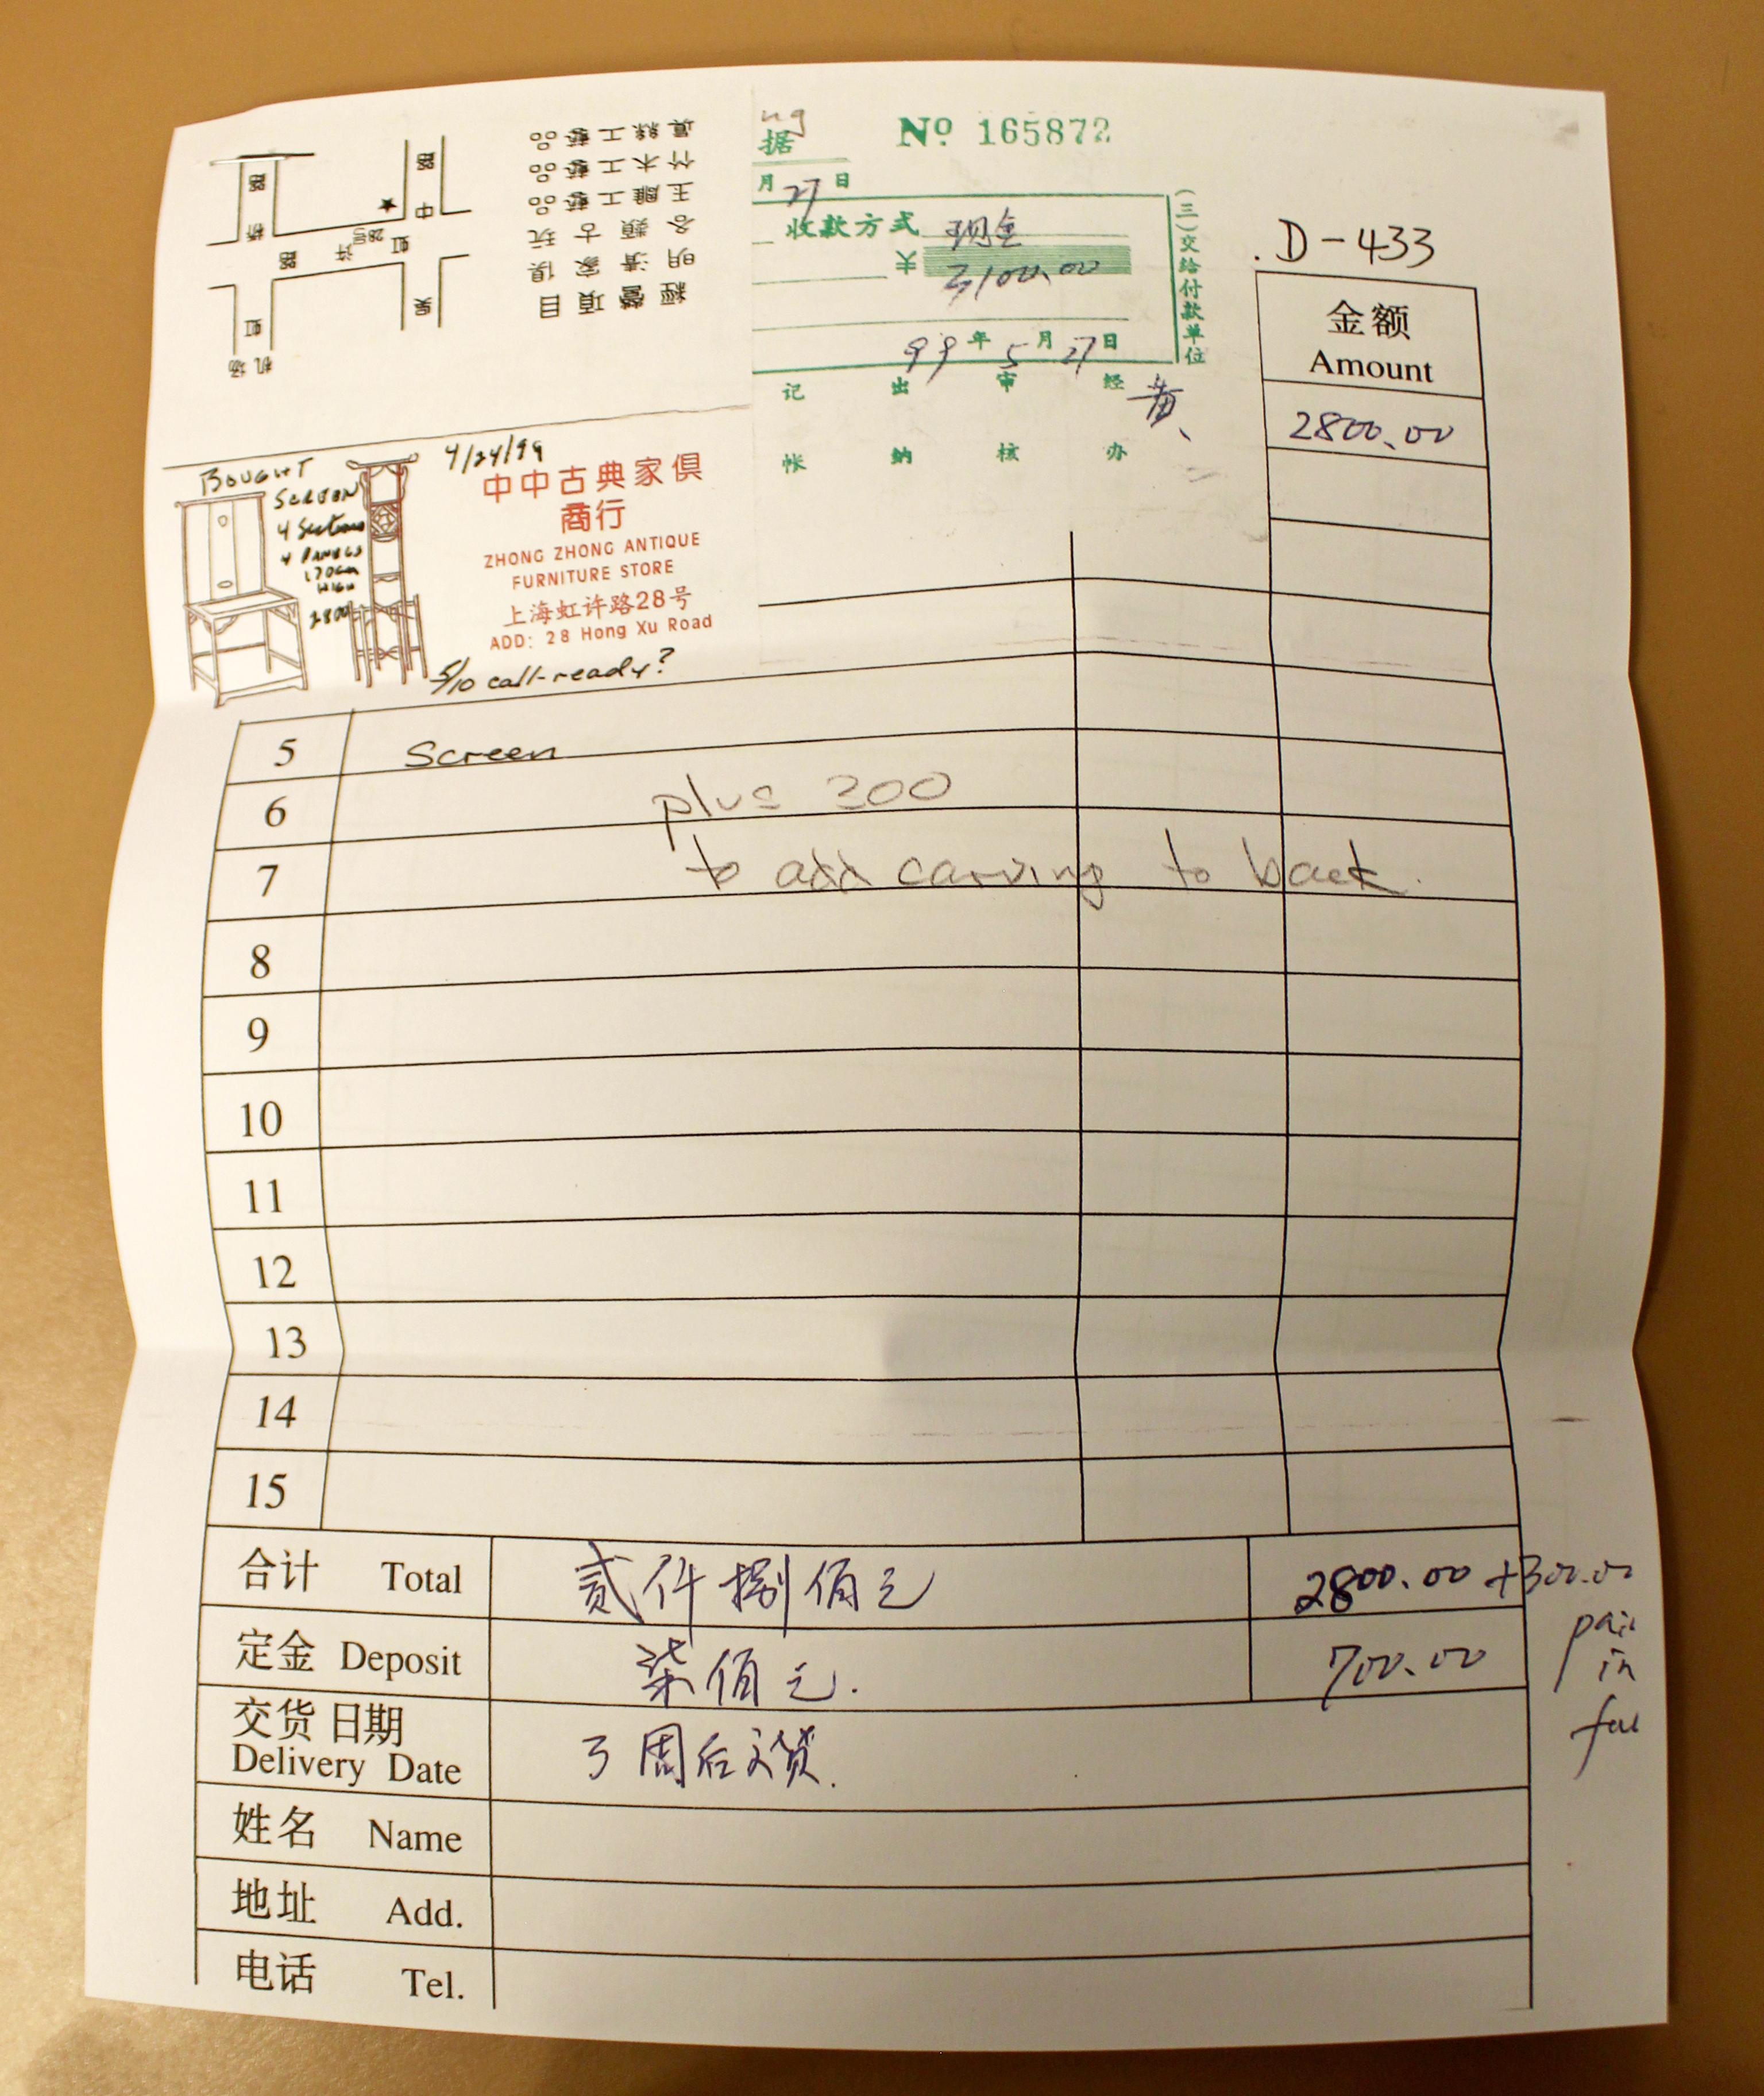 經營項目
明清家俱
各類古玩
玉雕工藝品
竹木工藝品
真絲工藝品
路
桥
虹
机场
路
28号
许
虹
路
中
吴
ng
据
Nº 165872
月 27 日
收款方式 现金
¥ 3100.00
99 年 5 月 27 日
(三)交给付款单位
记 出 审 经
帐 纳 核 办
黄
D-433
金额
Amount
2800.00
BOUGHT
SCREEN
4 Sections
4 PANELS
170cm
HIGH
2800
4/24/99
中中古典家俱
商行
ZHONG ZHONG ANTIQUE
FURNITURE STORE
上海虹许路28号
ADD: 28 Hong Xu Road
5/10 call-ready?
5 Screen
6 plus 300
7 to add carving to back.
8
9
10
11
12
13
14
15
合计 Total 贰仟捌佰元 2800.00 +300.00
定金 Deposit 柒佰元. 700.00
pai
in
ful
交货日期
Delivery Date 3周后交货.
姓名 Name
地址 Add.
电话 Tel.